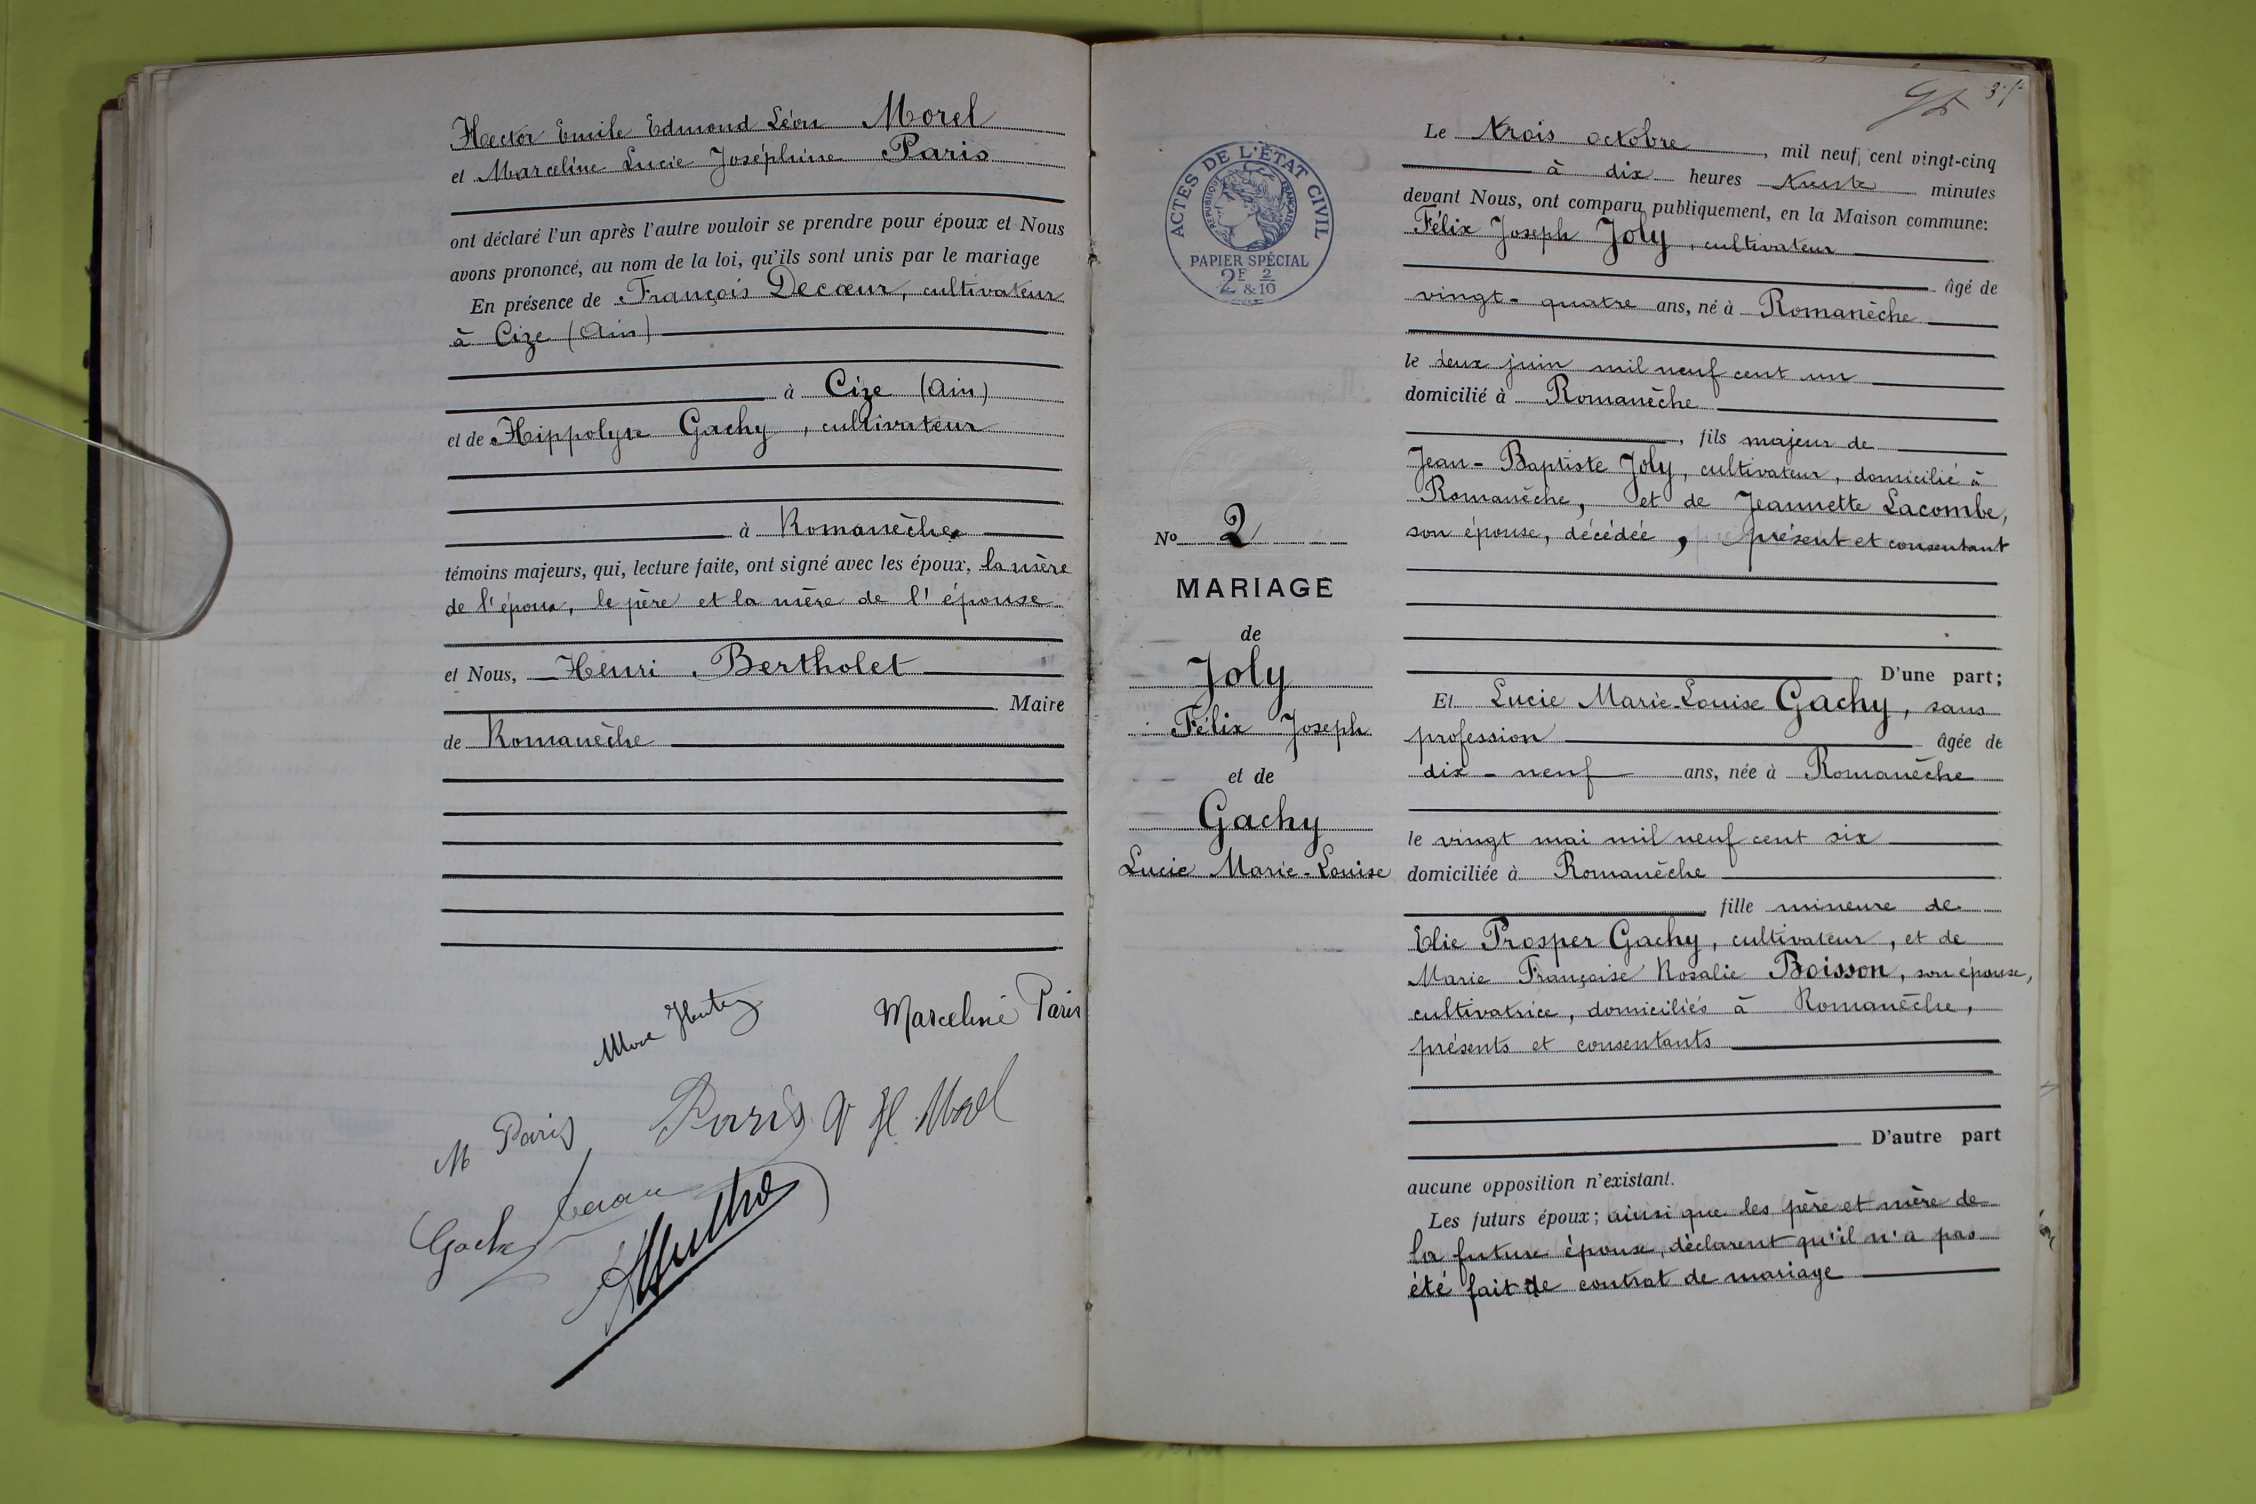 Hector Emile Edmond Léon Morel
et Marceline Lucie Joséphine Paris
ont déclaré l'un après l'autre vouloir se prendre pour époux et Nous
avons prononcé, au nom de la loi, qu'ils sont unis par le mariage
En présence de François Decœur, cultivateur
à Cize (Ain)
à Cize (Ain)
et de Hippolyte Gachy, cultivateur
à Romanèche
témoins majeurs, qui, lecture faite, ont signé avec les époux, la mère
de l'époux, le père et la mère de l'épouse
et Nous, Henri Bertholet
Maire
de Romanèche
Marceline Paris
M Paris
Paris H. Morel
ACTES DE L'ÉTAT CIVIL
RÉPUBLIQUE FRANÇAISE
PAPIER SPÉCIAL
2F & 2/10
No 2
MARIAGE
de
Joly
Félix Joseph
et de
Gachy
Lucie Marie-Louise
Le trois octobre, mil neuf cent vingt-cinq
à dix heures trente minutes
devant Nous, ont comparu publiquement, en la Maison commune:
Félix Joseph Joly, cultivateur
âgé de
vingt-quatre ans, né à Romanèche
le deux juin mil neuf cent un
domicilié à Romanèche
, fils majeur de
Jean-Baptiste Joly, cultivateur, domicilié à
Romanèche, et de Jeannette Lacombe,
son épouse, décédée, présent et consentant
D'une part;
Et Lucie Marie-Louise Gachy, sans
profession âgée de
dix-neuf ans, née à Romanèche
le vingt mai mil neuf cent six
domiciliée à Romanèche
fille mineure de
Elie Prosper Gachy, cultivateur, et de
Marie Françoise Rosalie Boisson, son épouse,
cultivatrice, domiciliés à Romanèche,
présents et consentants
D'autre part
aucune opposition n'existant.
Les futurs époux; ainsi que les père et mère de
la future épouse, déclarent qu'il n'a pas
été fait de contrat de mariage